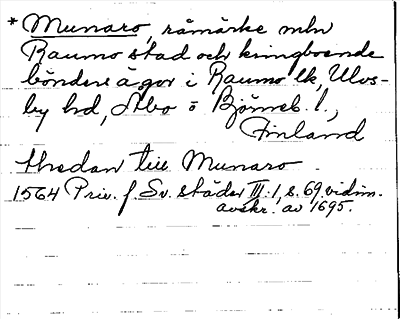 * Munaro, råmärke mln
Raumo stad och kringboende
bönders ägor i Raumo lk, Ulvs-
by hd, Åbo o Björneb. l.,
Finland
thedan till Munaro
1564 Priv. f. Sv. städer III:1, s. 69, vidim.
avskr. av 1695.